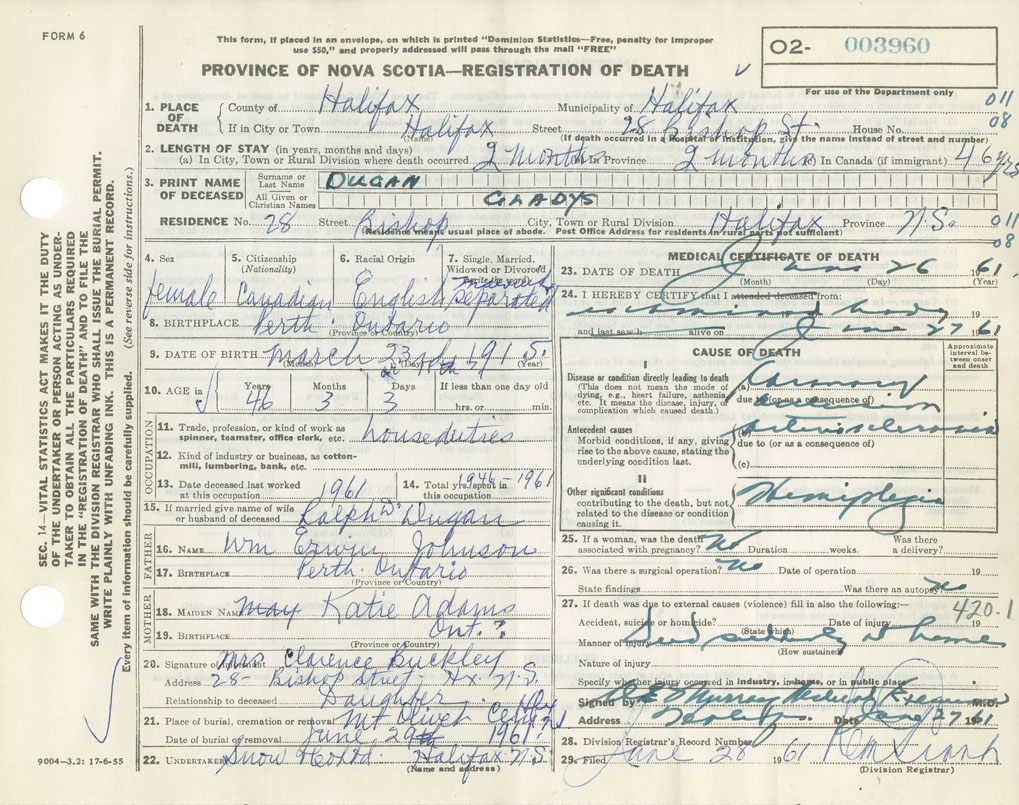 FORM 6
This form, if placed in an envelope, on which is printed "Dominion Statistics—Free, penalty for improper
use $50," and properly addressed will pass through the mail "FREE"
PROVINCE OF NOVA SCOTIA—REGISTRATION OF DEATH
02- 003960
For use of the Department only
011
08
1. PLACE OF DEATH County of Halifax Municipality of Halifax
If in City or Town Halifax Street 28 Bishop St. House No.
(Name) (If death occurred in a Hospital or institution, give the name instead of street and number)
2. LENGTH OF STAY (in years, months and days)
(a) In City, Town or Rural Division where death occurred 2 months (b) In Province 2 months (c) In Canada (if immigrant) 46 yrs
3. PRINT NAME OF DECEASED Surname or Last Name DUGAN
All Given or Christian Names GLADYS
RESIDENCE No. 28 Street Bishop City, Town or Rural Division Halifax Province N.S. 011
08
Residence means usual place of abode. Post Office Address for residents in rural parts not sufficient)
4. Sex 5. Citizenship (Nationality) 6. Racial Origin 7. Single, Married, Widowed or Divorced
female Canadian English Separated
8. BIRTHPLACE Perth Ontario
(Province or Country)
9. DATE OF BIRTH March 23 1915.
(Month) (Day) (Year)
10. AGE in Years Months Days If less than one day old
46 3 3 hrs. or min.
OCCUPATION
11. Trade, profession, or kind of work as spinner, teamster, office clerk, etc. houseduties
12. Kind of industry or business, as cotton-mill, lumbering, bank, etc.
13. Date deceased last worked at this occupation 1961
14. Total yrs. spent in this occupation 1946-1961
15. If married give name of wife or husband of deceased Ralph D. Dugan
FATHER
16. NAME Wm Erwin Johnson
17. BIRTHPLACE Perth. Ontario
(Province or Country)
MOTHER
18. MAIDEN NAME May Katie Adams
19. BIRTHPLACE Ont. ?
(Province or Country)
20. Signature of informant Mrs Clarence Buckley
Address 28- Bishop Street- Hx. N.S.
Relationship to deceased Daughter
21. Place of burial, cremation or removal Mt Olivet Cem Hfx N.S
Date of burial or removal June 29th 1961
22. UNDERTAKER Snow Halifax N.S.
(Name and address)
9004—3.2: 17-6-55
MEDICAL CERTIFICATE OF DEATH
23. DATE OF DEATH June 26 1961.
(Month) (Day) (Year)
24. I HEREBY CERTIFY that I attended deceased from:
examined body 19
and last saw h alive on June 27 61
CAUSE OF DEATH
Approximate interval between onset and death
I
Disease or condition directly leading to death
(This does not mean the mode of dying, e.g., heart failure, asthenia, etc. It means the disease, injury, or complication which caused death.)
(a) Coronary occlusion
due to (or as a consequence of)
Antecedent causes
Morbid conditions, if any, giving rise to the above cause, stating the underlying condition last.
(b) arteriosclerosis
due to (or as a consequence of)
(c)
II
Other significant conditions
contributing to the death, but not related to the disease or condition causing it.
Hemiplegia
25. If a woman, was the death associated with pregnancy? No Duration weeks. Was there a delivery?
26. Was there a surgical operation? No Date of operation 19
State findings Was there an autopsy? No
27. If death was due to external causes (violence) fill in also the following:— 420.1
Accident, suicide or homicide? Date of injury 19
(State which)
Manner of injury Died suddenly at home
(How sustained)
Nature of injury
Specify whether injury occurred in industry, in home, or in public place
Signed by Murray Medical Examiner M.D.
Address Halifax. Date June 27 1961
28. Division Registrar's Record Number
29. Filed June 28 1961
(Division Registrar)
SEC. 14—VITAL STATISTICS ACT MAKES IT THE DUTY
OF THE UNDERTAKER OR PERSON ACTING AS UNDER-
TAKER TO OBTAIN ALL THE PARTICULARS REQUIRED
IN THE "REGISTRATION OF DEATH" AND TO FILE THE
SAME WITH THE DIVISION REGISTRAR WHO SHALL ISSUE THE BURIAL PERMIT.
WRITE PLAINLY WITH UNFADING INK. THIS IS A PERMANENT RECORD.
Every item of information should be carefully supplied. (See reverse side for instructions.)